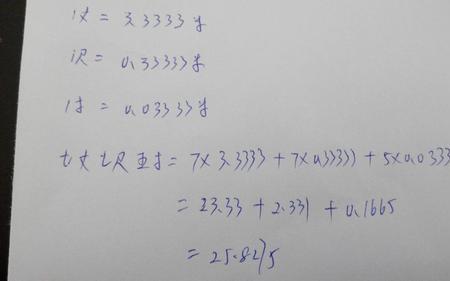 1丈 = 3.3333 y
1尺 = 0.33333 y
1寸 = 0.03333 y
七丈七尺五寸 = 7×3.3333 + 7×0.33333 + 5×0.0333
= 23.33 + 2.331 + 0.1665
= 25.8275